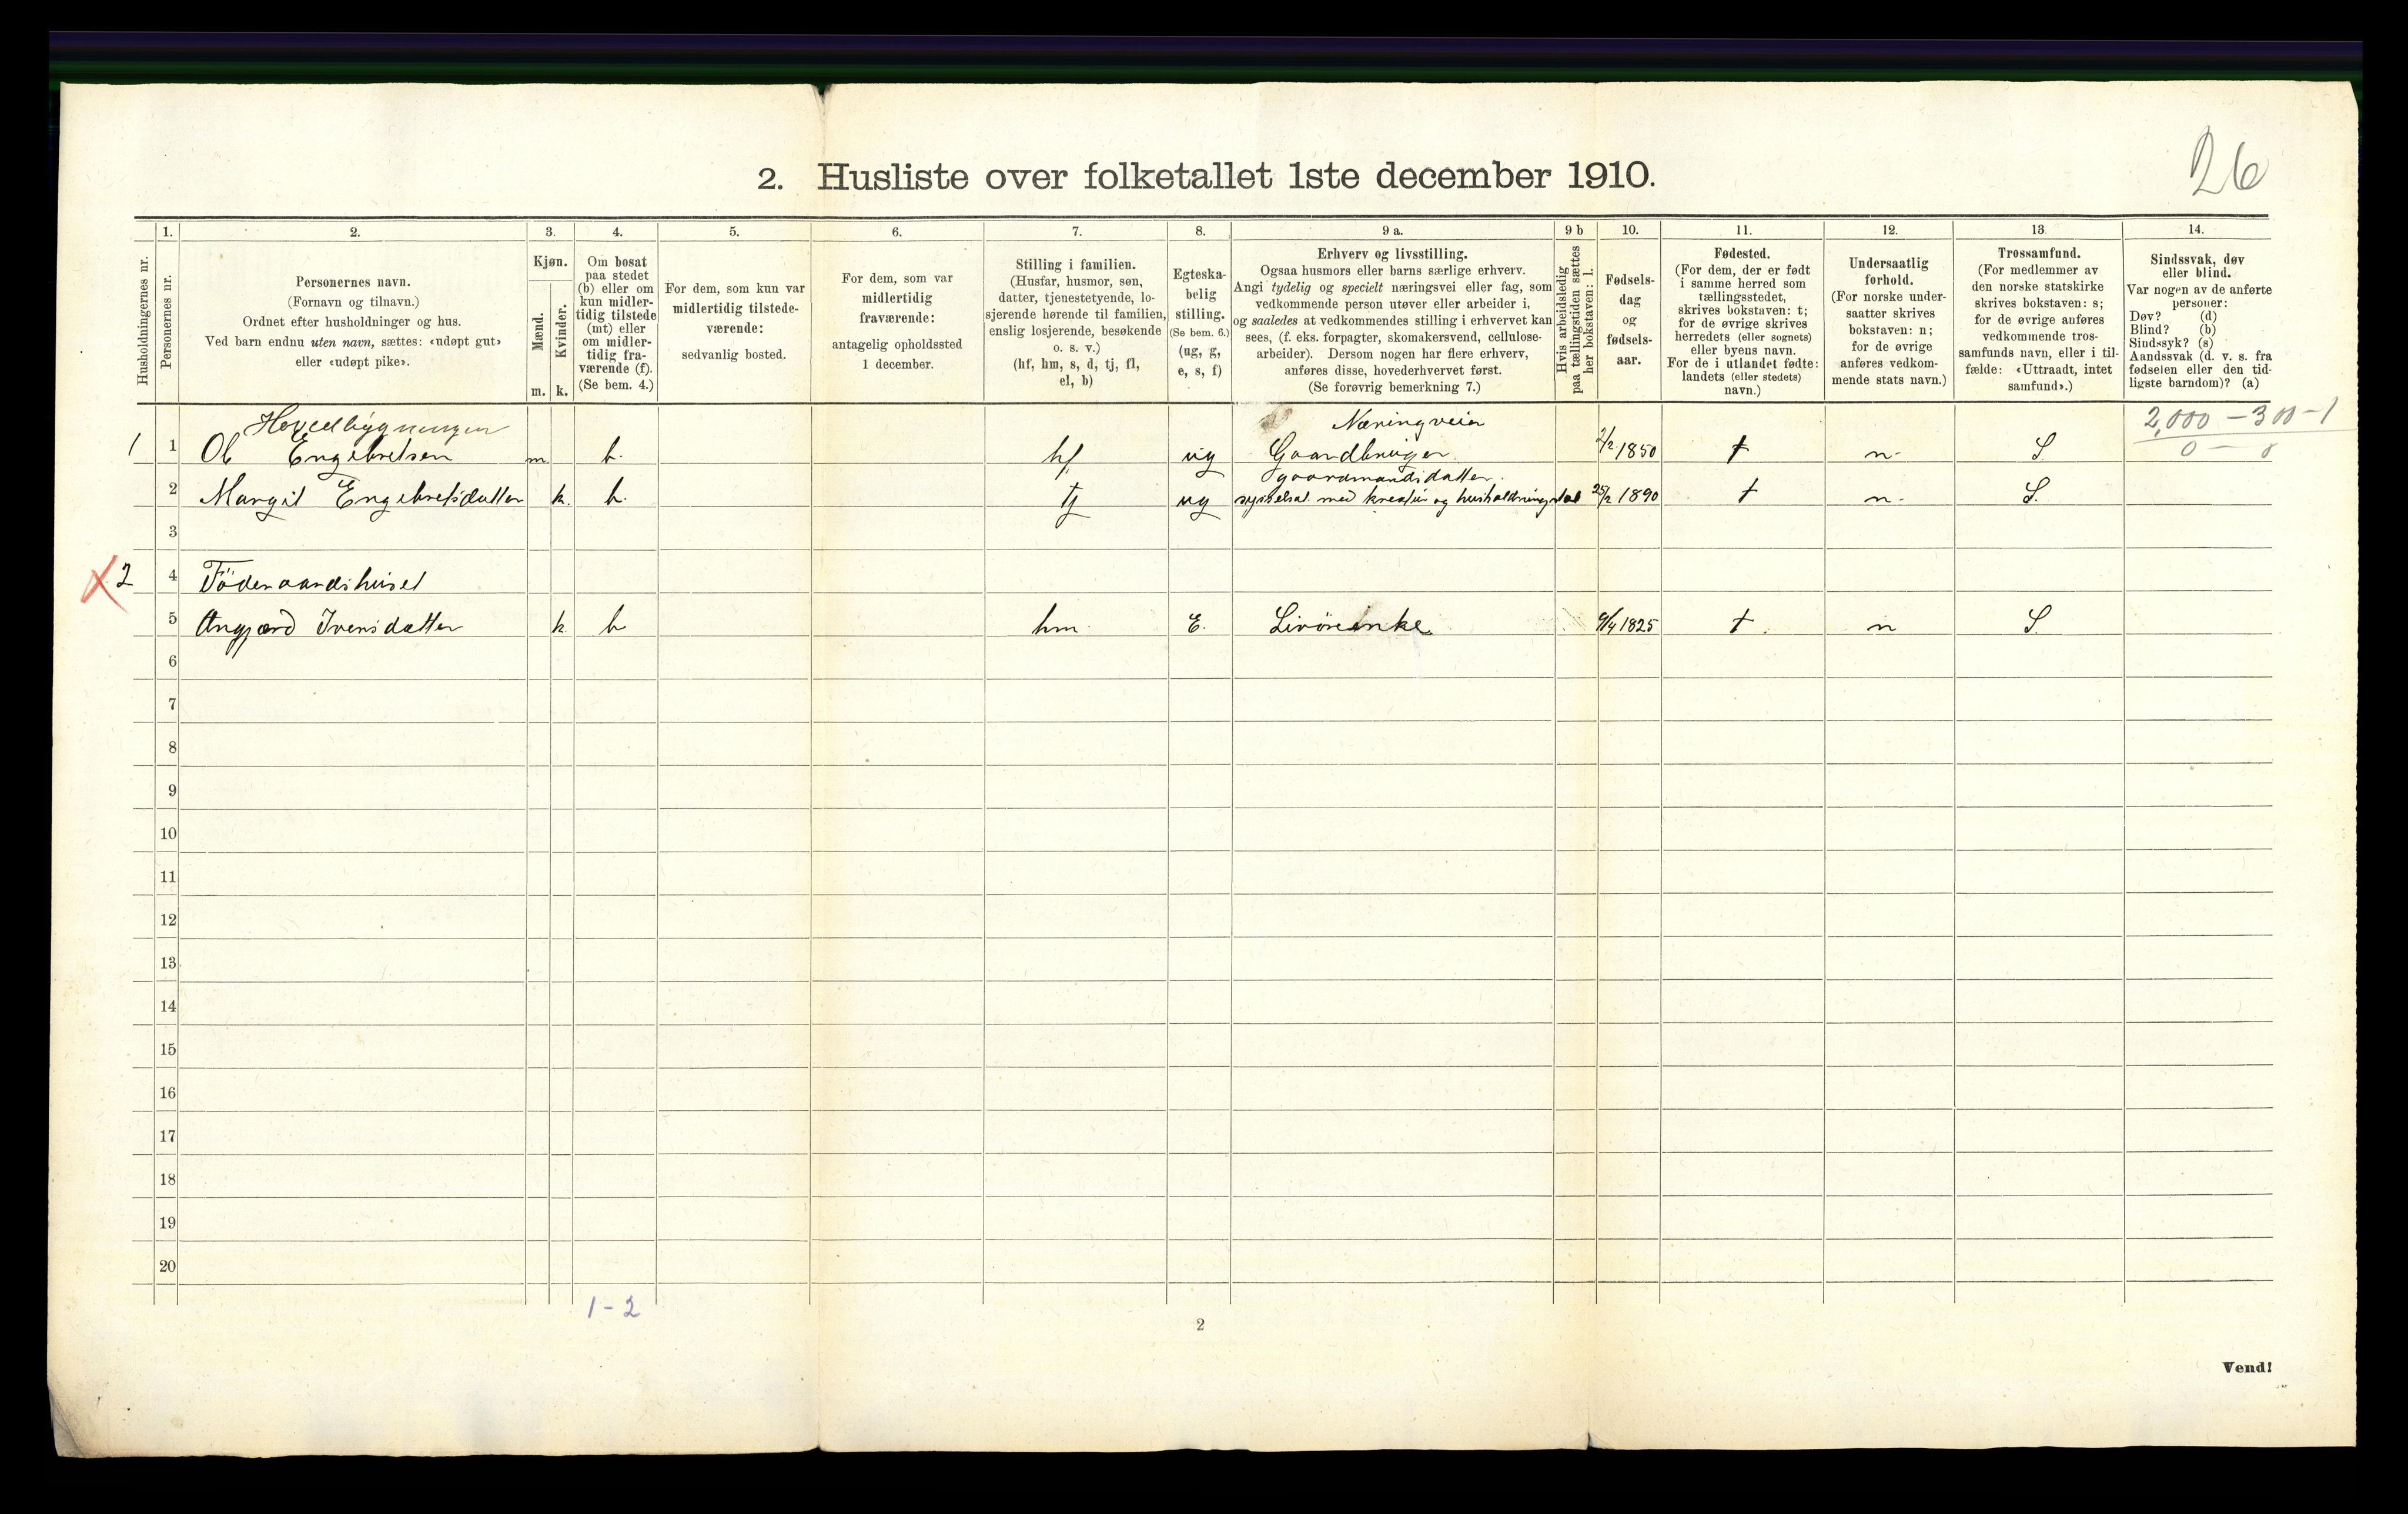 26
2. Husliste over folketallet 1ste december 1910.
Husholdningernes nr.
1. Personernes nr.
2. Personernes navn.
(Fornavn og tilnavn.)
Ordnet efter husholdninger og hus.
Ved barn endnu uten navn, sættes: «udøpt gut»
eller «udøpt pike».
3. Kjøn.
Mænd. m.
Kvinder. k.
4. Om bosat
paa stedet
(b) eller om
kun midler-
tidig tilstede
(mt) eller
om midler-
tidig fra-
værende (f).
(Se bem. 4.)
5. For dem, som kun var
midlertidig tilstede-
værende:
sedvanlig bosted.
6. For dem, som var
midlertidig
fraværende:
antagelig opholdssted
1 december.
7. Stilling i familien.
(Husfar, husmor, søn,
datter, tjenestetyende, lo-
sjerende hørende til familien,
enslig losjerende, besøkende
o. s. v.)
(hf, hm, s, d, tj, fl,
el, b)
8. Egteska-
belig
stilling.
(Se bem. 6.)
(ug, g,
e, s, f)
9 a. Erhverv og livsstilling.
Ogsaa husmors eller barns særlige erhverv.
Angi tydelig og specielt næringsvei eller fag, som
vedkommende person utøver eller arbeider i,
og saaledes at vedkommendes stilling i erhvervet kan
sees, (f. eks. forpagter, skomakersvend, cellulose-
arbeider). Dersom nogen har flere erhverv,
anføres disse, hovederhvervet først.
(Se forøvrig bemerkning 7.)
9 b Hvis arbeidsledig
paa tællingstiden sættes
her bokstaven: l.
10. Fødsels-
dag
og
fødsels-
aar.
11. Fødested.
(For dem, der er født
i samme herred som
tællingsstedet,
skrives bokstaven: t;
for de øvrige skrives
herredets (eller sognets)
eller byens navn.
For de i utlandet fødte:
landets (eller stedets)
navn.)
12. Undersaatlig
forhold.
(For norske under-
saatter skrives
bokstaven: n;
for de øvrige
anføres vedkom-
mende stats navn.)
13. Trossamfund.
(For medlemmer av
den norske statskirke
skrives bokstaven: s;
for de øvrige anføres
vedkommende tros-
samfunds navn, eller i til-
fælde: «Uttraadt, intet
samfund».)
14. Sindssvak, døv
eller blind.
Var nogen av de anførte
personer:
Døv? (d)
Blind? (b)
Sindssyk? (s)
Aandssvak (d. v. s. fra
fødselen eller den tid-
ligste barndom)? (a)
Hovedbygningen Næringveier 2,000 – 300 – 1
1 1 Ole Engebretsen m. b. hf ug Gaardbruger 1850 t n. S 0 – 0
gaardmandsdatter.
2 Margit Engebretsdatter k. b. tj ug sysselsat med kreatur og husholdning stel 25/2 1890 t n. S.
3
X 2 4 Föderaadshuset
5 Angjærd Iversdatter k. b hm. E. Livöreinke 6/4 1825 t. n S.
6
7
8
9
10
11
12
13
14
15
16
17
18
19
20
1 – 2
2
Vend!